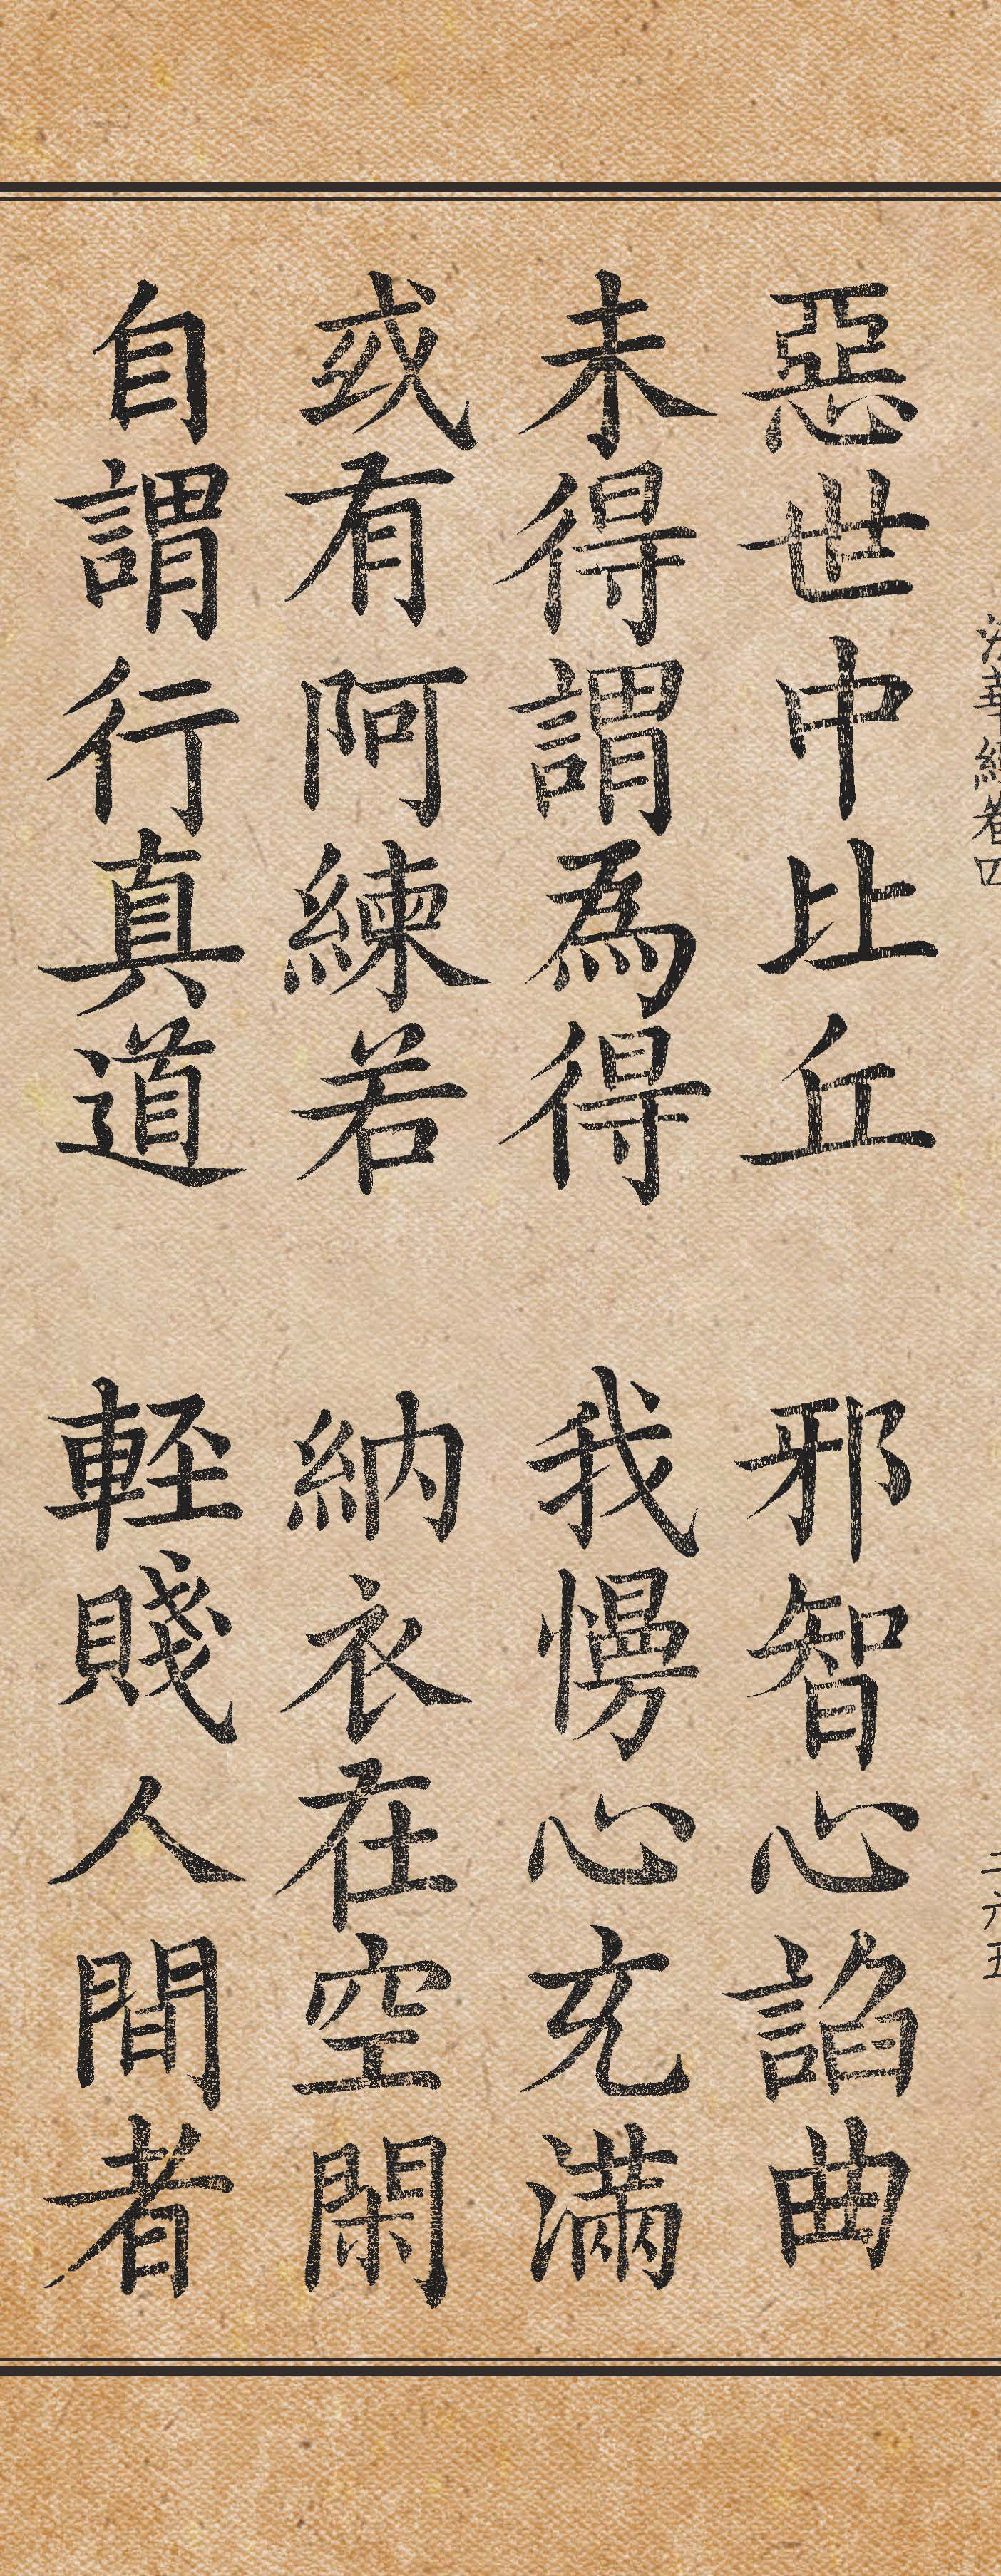 法華經卷四
二六五
惡世中比丘 邪智心諂曲
未得謂為得 我慢心充滿
或有阿練若 納衣在空閑
自謂行真道 輕賤人間者